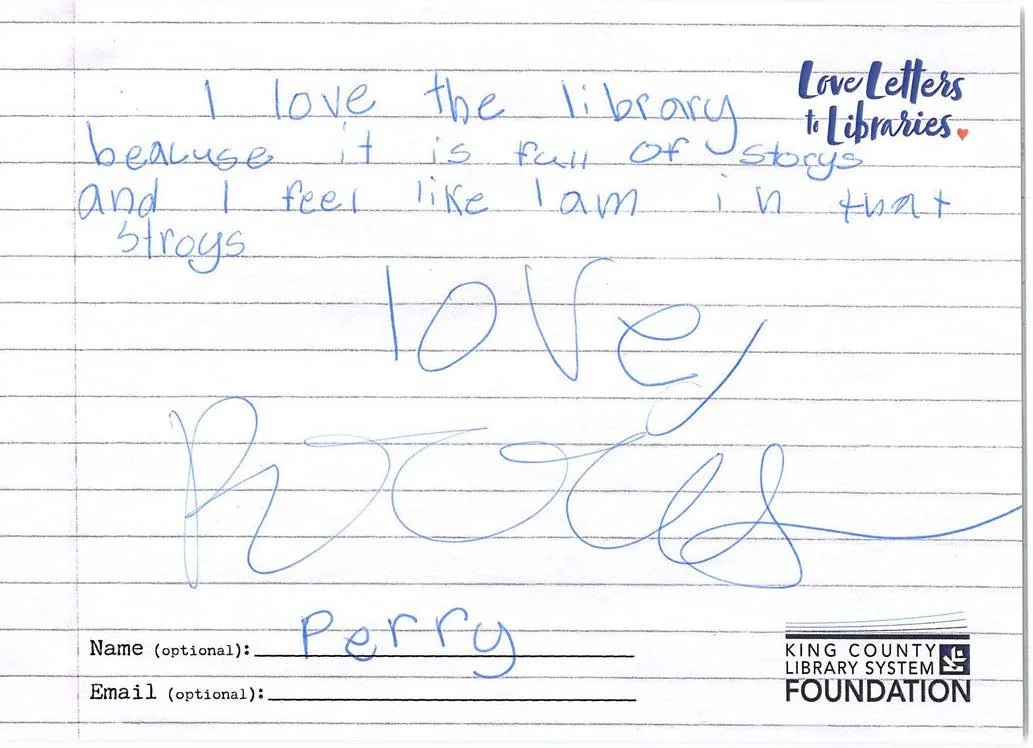 I love the library
Love Letters
to Libraries
beacuse it is full of storys
and I feel like I am in that
stroys
love,
Name (optional): Perry
Email (optional):
KING COUNTY
LIBRARY SYSTEM
FOUNDATION